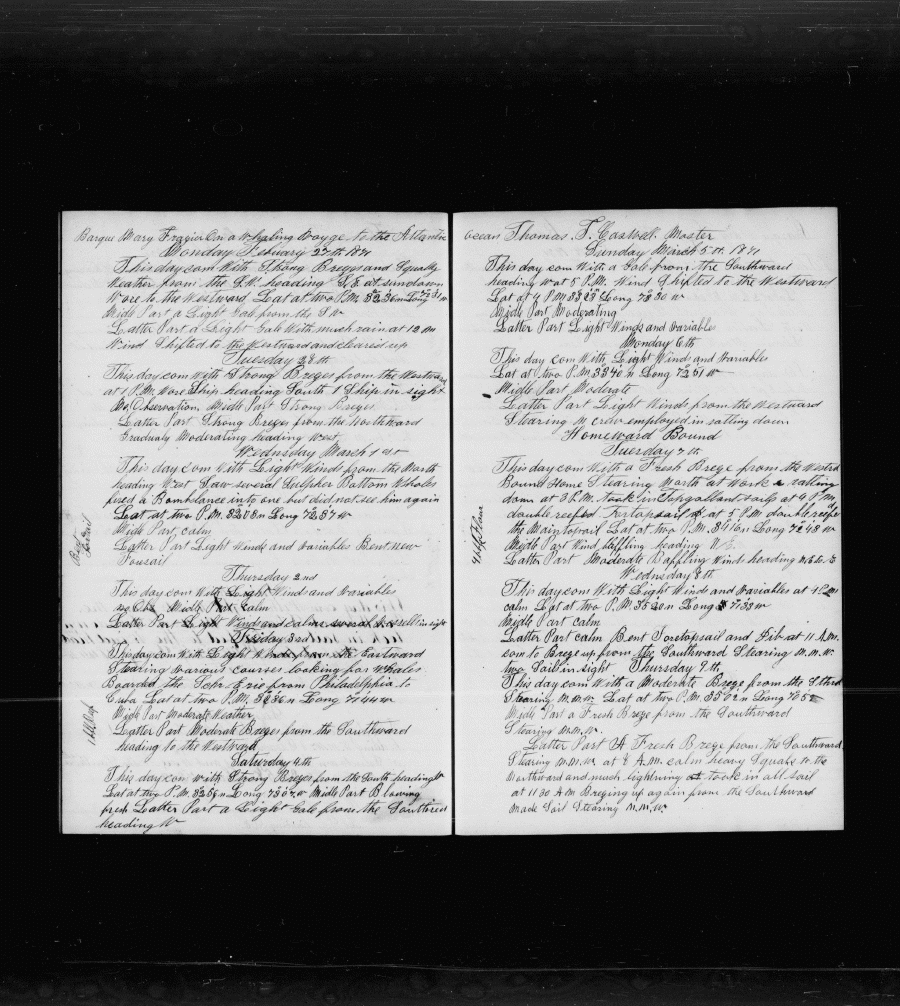 Barque Mary Frazier On a Whaling Voyge to the Atlantic
Monday Febuary 27th 1871
This day com With Strong Brezes and Squally
Weather from the S.W. heading S.E. at sundown
Wore to the Westward Lat at two P.M. 32 36 n Long 72 31 W
Midle Part a Light Gale from the S W
Latter Part a Light Gale With much rain at 12 M
Wind Shifted to the Westward and cleared up
Tuesday 28th
This day com With Strong Brezes from the Westward
at 1 P.M. Wore Ship heading South 1 Ship in sight
No Observation Midle Part Strong Brezes
Latter Part Strong Brezes from the Northward
Gradualy Moderating heading West
Wednesday March 1st
This day com With Light Wind from the North
heading West Saw several Sulpher Bottom Whales
fired a Bomblance into one but did not see him again
Lat at two P.M. 32 08 n Long 72 57 W
Midle Part calm
Latter Part Light Winds and Variables Bent New
Forsail
Thursday 2nd
This day com With Light Winds and Variables
no Obs Midle Part calm
Latter Part Light Wind and calms several in sight
Friday 3rd
This day com With Light Winds from the Eastward
Stearing Various courses looking for Whales
Boarded the Schr. from Philadelphia to
Cuba Lat at two P.M. 32 36 n Long 71 44 W
Midle Part Moderate Weather
Latter Part Moderate Brezes from the Southward
heading to the Westward
Saturday 4th
This day com With Strong Brezes from the South heading W
Lat at two P.M. 32 58 n Long 73 07 W Midle Part Blowing
fresh Latter Part a Light Gale from the Southerd
heading W
ocean Thomas. T. Caswell. Master
Sunday March 5th. 1871
This day com With a Gale from the Southward
heading W at 5 P.M. Wind Shifted to the Westward
Lat at 4 P M 33 23 Long 73 30 W
Midle Part Moderating
Latter Part Light Winds and Variables
Monday 6th
This day com With Light Winds and Variables
Lat at two P.M. 33 40 n Long 72 51 W
Midle Part Moderate
Latter Part Light Winds from the Westward
Stearing N crew employed in ratling down
Homeward Bound
Tuesday 7th
This day com With a Fresh Breze from the Westerd
Bound Home Stearing North at Work ratling
down at 3 P.M. took in Topgallant sails at 4 P.M.
double reefed Fortopsail at 5 P.M. double reefed
the Maintopsail Lat at two P.M. 34 16 n Long 72 48 W
Midle Part Wind Baffling heading N E.
Latter Part Moderate Baffling Wind heading
Wednesday 8th
This day com With Light Winds and Variables at 4 P M
calm Lat at two P.M. 35 20 n Long 71 33 W
Midle Part calm
Latter Part calm Bent Foretopsail and Jib at 11 A.M.
com to Breze up from the Southward Stearing N.N.W.
two Sail in sight Thursday 9th.
This day com With a Moderate Breze from the Sthard
Stearing N.N.W. Lat at two P.M. 35 52 n Long
Midle Part a Fresh Breze from the Southward
Stearing N.N.W.
Latter Part A Fresh Breze from the Southward
Stearing N.N.W. at 8 A.M. calm heavy Squals to the
Northward and much lightning took in all sail
at 11 30 A M Brezing up again from the Southward
made Sail Stearing N.N.W.